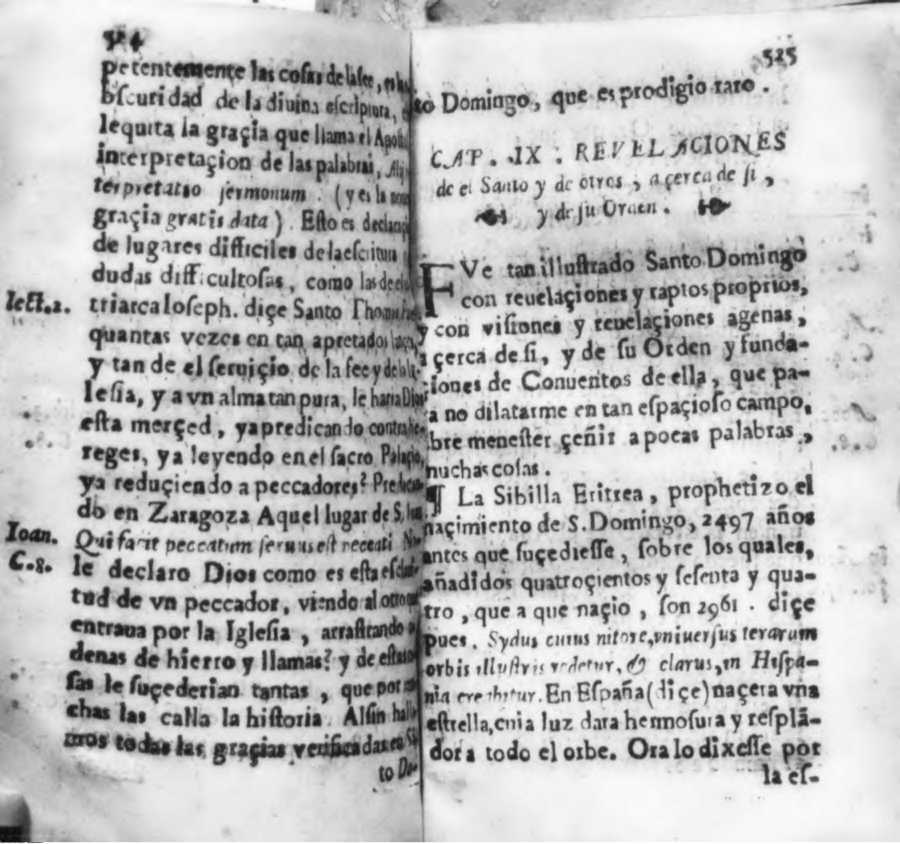 petentemente las cosas de la fee, en la
obscuridad de la diuina escriptura,
lequita la graçia que llama el Apost
interpretaçion de las palabras,
terpretatio sermonum. (y es la
graçia gratis data). Esto es declarar
de lugares difficiles de la escritura
dudas difficultosas, como las de el
lect.2.
triarca Ioseph. diçe Santo Thomas
quantas vezes en tan apretados
y tan de el seruiçio de la fee y de la
lesia, y a vn alma tan pura, le haria Dios
esta merçed, ya predicando contra he
reges, ya leyendo en el sacro Palaçio,
ya reduçiendo a peccadores? Predican
do en Zaragoza Aquel lugar de S. Iuan.
Ioan.
C.8.
Qui facit peccatum seruus est peccati
le declaro Dios como es esta escla
tud de vn peccador, viendo al otro
entraua por la Iglesia, arrastrando
denas de hierro y llamas? y de estas
sas le suçederian tantas, que por
chas las calla la historia. Assin halla
mos todas las graçias verificadas en Sã
to Do-
525
to Domingo, que es prodigio raro.
CAP. IX: REVELACIONES
de el Santo y de otros, açerca de si,
y de su Orden.
FVe tan illustrado Santo Domingo
con reuelaçiones y raptos proprios,
y con visiones y reuelaçiones agenas,
açerca de si, y de su Orden y funda-
ciones de Conuentos de ella, que pa-
ra no dilatarme en tan espaçioso campo,
bre menester çeñir a pocas palabras,
muchas cosas.
¶ La Sibilla Eritrea, prophetizo el
naçimiento de S. Domingo, 2497 años
antes que suçediesse, sobre los quales,
añadidos quatroçientos y sesenta y qua-
tro, que a que naçio, son 2961. diçe
pues. Sydus cuius nitore, vniuersus terarum
orbis illustris redetur, & clarus, in Hispa-
nia exe ibitur. En España (diçe) naçera vna
estrella, cuia luz dara hermosura y resplã-
dor a todo el orbe. Ora lo dixesse por
la es-